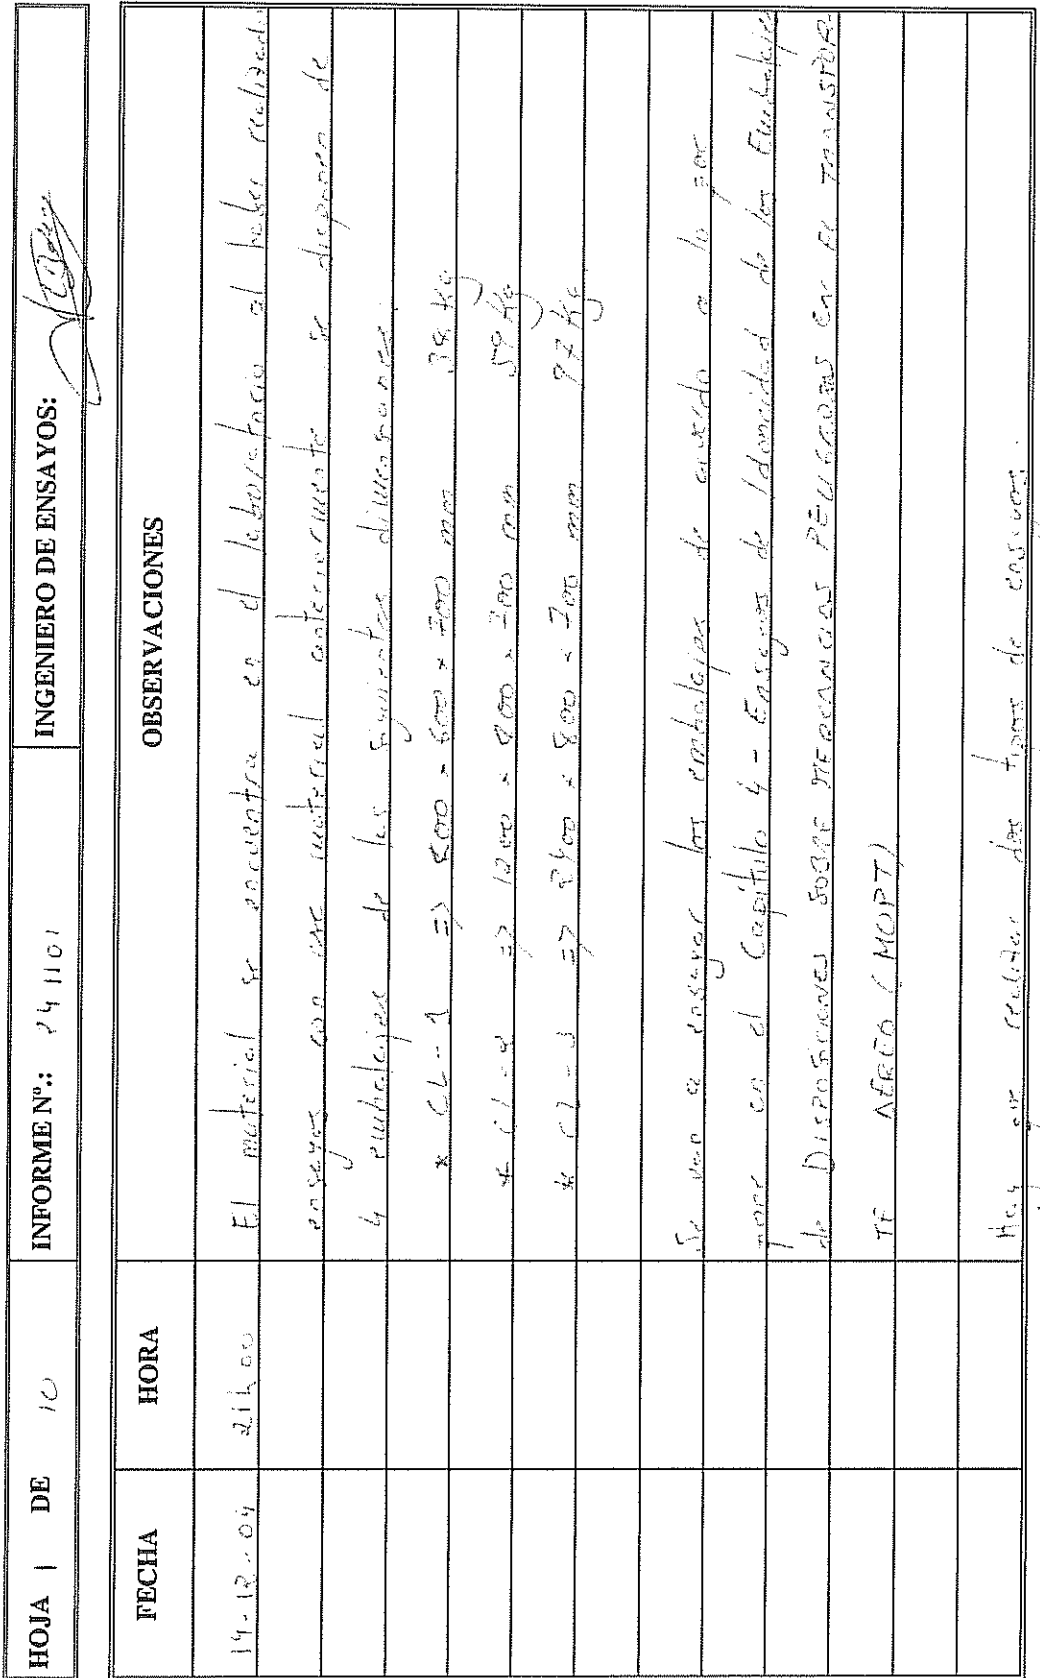 HOJA 1 DE 10 INFORME Nº.: 241101 INGENIERO DE ENSAYOS:
FECHA HORA OBSERVACIONES
14-12-04 21h00 El material se encuentra en el laboratorio al haber realizado
ensayos con ese material anteriormente se disponen de
4 embalajes de las siguientes dimensiones
* CL-1 => 800 x 600 x 700 mm 38 Kg
* CL-2 => 1200 x 800 x 700 mm 59 Kg
* CL-3 => 2400 x 800 x 700 mm 97 Kg
Se van a ensayar los embalajes de acuerdo a lo ex-
puesto en el Capítulo 4 - Ensayos de Idoneidad de los Embalajes
de DISPOSICIONES SOBRE MERCANCIAS PELIGROSAS EN EL TRANSPOR-
TE AEREO (MOPT)
Hay que realizar dos tipos de ensayos.